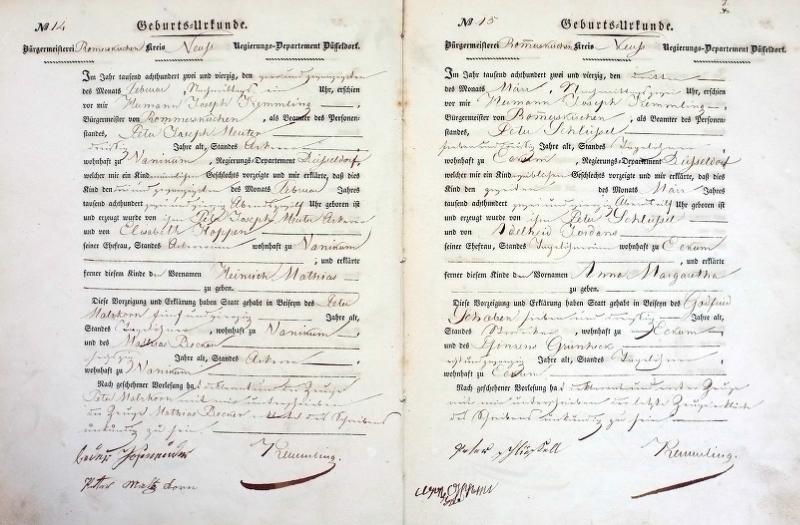 № 14
Geburts-Urkunde.
Bürgermeisterei Rommerskirchen Kreis Neuß Regierungs-Departement Düsseldorf.
Im Jahr tausend achthundert zwei und vierzig, den
des Monats Februar Nachmittags Uhr, erschien
vor mir Hermann Joseph Kemmling
Bürgermeister von Rommerskirchen, als Beamter des Personen-
standes, Peter Joseph Meuter
dreißig Jahre alt, Standes Ackerer
wohnhaft zu Vanikum, Regierungs-Departement Düsseldorf
welcher mir ein Kind männlichen Geschlechts vorzeigte und mir erklärte, daß dies
Kind den und zwanzigsten des Monats Februar Jahres
tausend achthundert zwei und vierzig Abends Uhr geboren ist
und erzeugt wurde von ihm Peter Joseph Meuter Ackerer
und von Elisabeth Hoppen
seiner Ehefrau, Standes Ackererin wohnhaft zu Vanikum
; und erklärte
ferner diesem Kinde den Vornamen Heinrich Mathias
zu geben.
Diese Vorzeigung und Erklärung haben Statt gehabt in Beiseyn des Peter
Malzkorn fünf und vierzig Jahre alt,
Standes Tagelöhner, wohnhaft zu Vanikum
und des Mathias Becker
sechszig Jahre alt, Standes Ackerer
wohnhaft zu Vanikum
Nach geschehener Vorlesung ha Deklarant und der Zeuge
Peter Malzkorn mit mir unterschrieben
der Zeuge Mathias Becker des Schreibens
unkundig zu sein
Kemmling.
Peter Malzkorn
№ 15
Geburts-Urkunde.
Bürgermeisterei Rommerskirchen Kreis Neuß Regierungs-Departement Düsseldorf.
Im Jahr tausend achthundert zwei und vierzig, den
des Monats März, Nachmittags Uhr, erschien
vor mir Hermann Joseph Kemmling
Bürgermeister von Rommerskirchen, als Beamter des Personen-
standes, Peter Schlüssel
sieben und Jahre alt, Standes Tagelöhner
wohnhaft zu Eckum, Regierungs-Departement Düsseldorf
welcher mir ein Kind weiblichen Geschlechts vorzeigte und mir erklärte, daß dies
Kind den des Monats März Jahres
tausend achthundert zwei und vierzig Abends Uhr geboren ist
und erzeugt wurde von ihm Peter Schlüssel
und von Adelheid Jordans
seiner Ehefrau, Standes Tagelöhnerin wohnhaft zu Eckum
; und erklärte
ferner diesem Kinde den Vornamen Anna Margaretha
zu geben.
Diese Vorzeigung und Erklärung haben Statt gehabt in Beiseyn des Gottfried
sieben und dreißig Jahre alt,
Standes, wohnhaft zu Eckum
und des
acht und zwanzig Jahre alt, Standes Tagelöhner
wohnhaft zu Eckum
Nach geschehener Vorlesung ha Deklarant und Zeuge
mit mir unterschrieben der letzte Zeuge erklärte
des Schreibens unkundig zu sein
Peter Schlüssell
Kemmling.